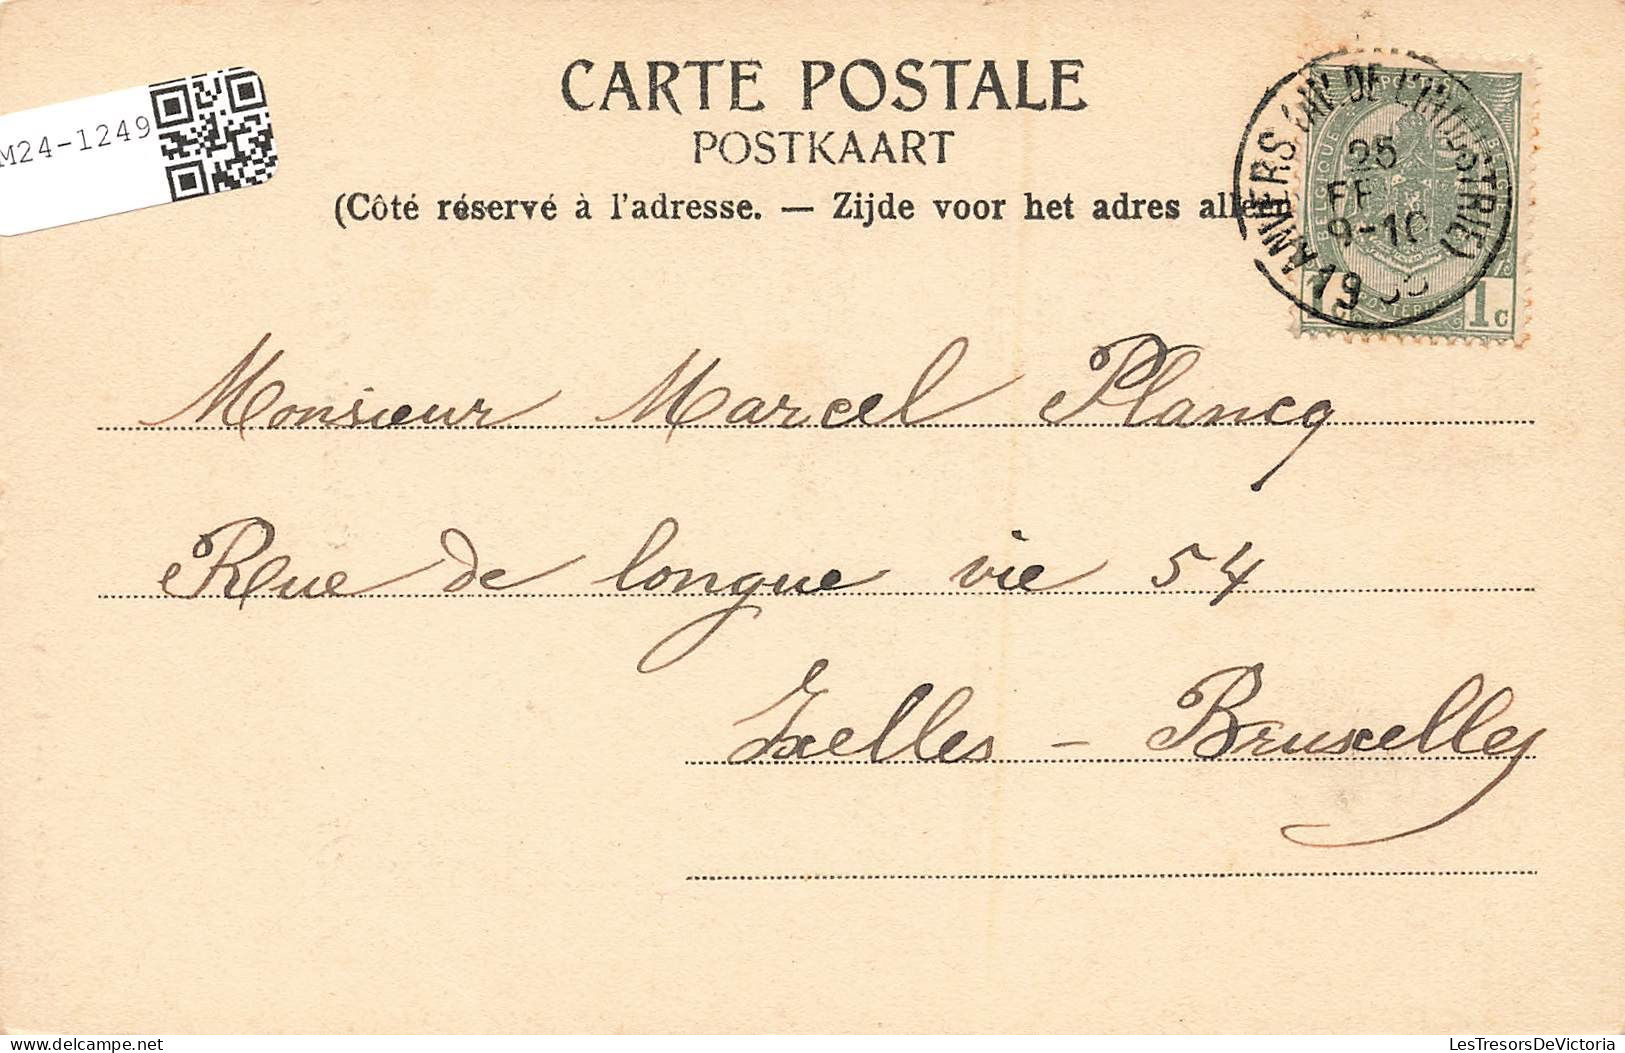 CARTE POSTALE
POSTKAART
(Côté réservé à l'adresse. — Zijde voor het adres alleen
M24-1249
ANVERS (AV. DE L'INDUSTRIE)
25
9-10
19
1c
Monsieur Marcel Plancq
Rue de longue vie 54
Ixelles - Bruxelles
delcampe.net
LesTresorsDeVictoria